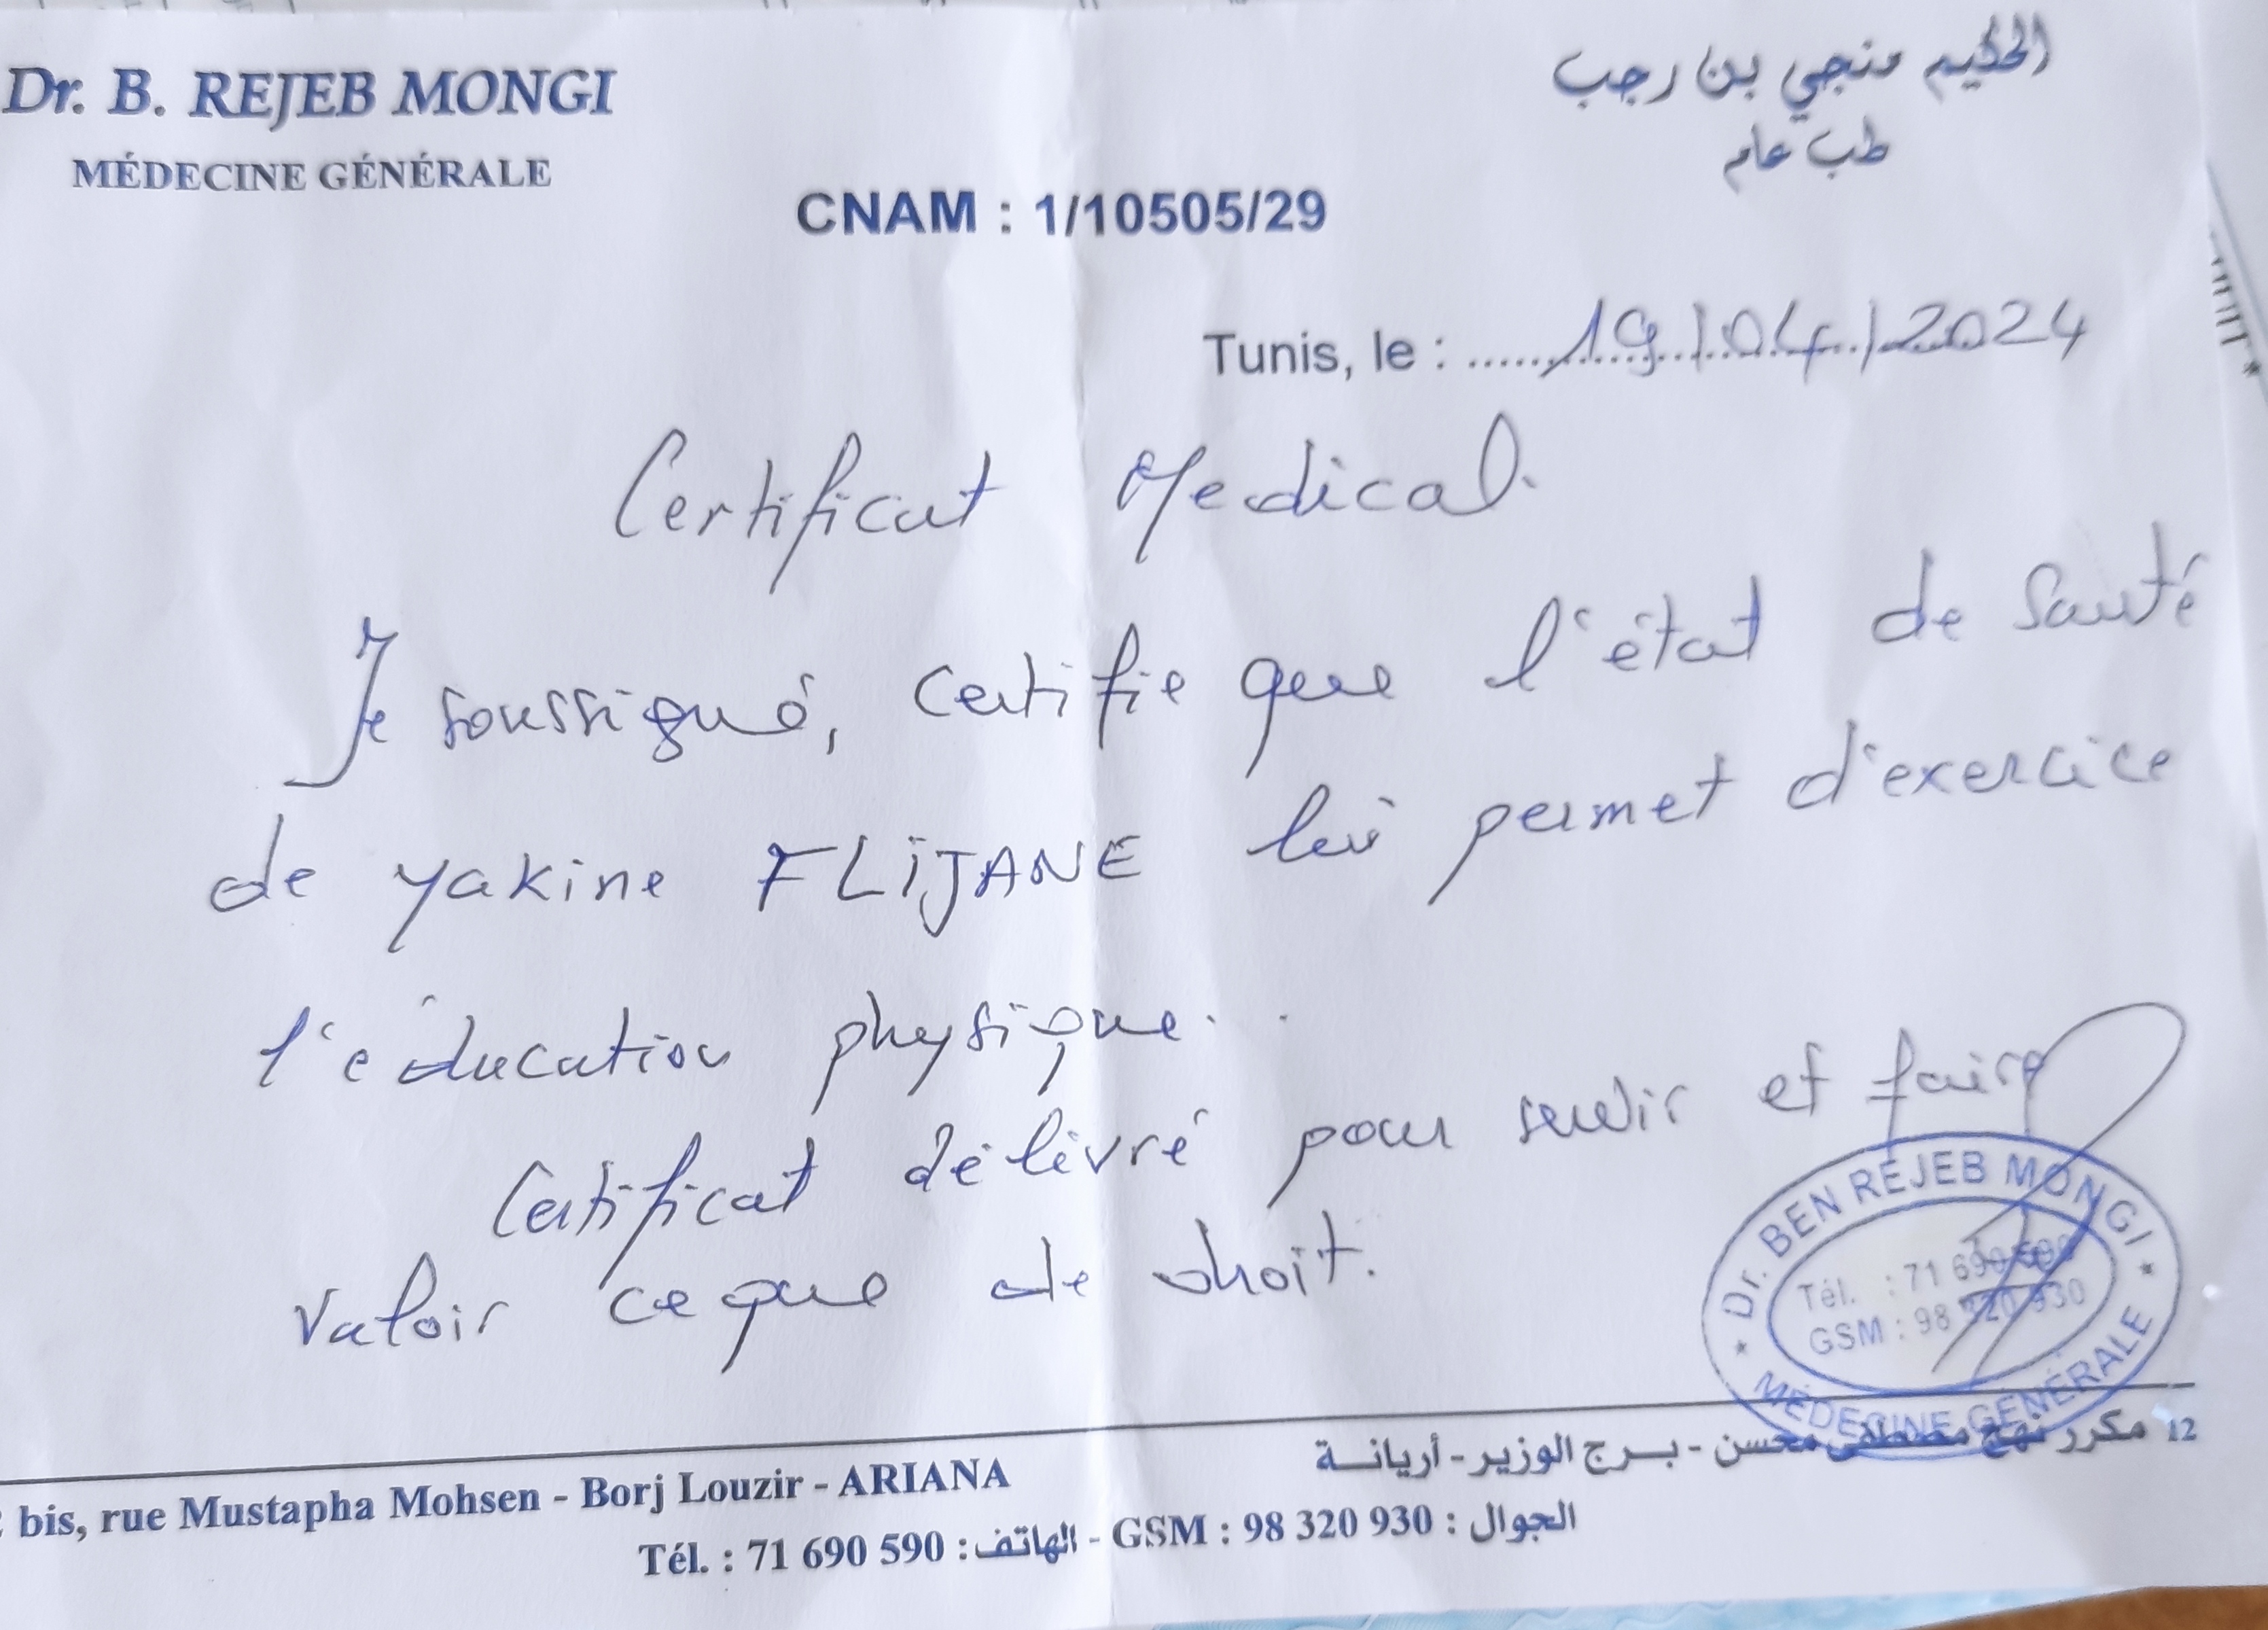 Dr. B. REJEB MONGI
MÉDECINE GÉNÉRALE
الحكيم منجي بن رجب
طب عام
CNAM : 1/10505/29
Tunis, le : 19/04/2024
Certificat Medical.
Je soussigné, certifie que l'état de Santé
de yakine FLIJANE lui permet d'exercice
l'éducation physique.
Certificat délivré pour servir et faire
valoir ce que de droit.
Dr. BEN REJEB MONGI
Tél. : 71 690 590
GSM : 98 320 930
MÉDECINE GÉNÉRALE
bis, rue Mustapha Mohsen - Borj Louzir - ARIANA
12 مكرر نهج مصطفى محسن - بـرج الوزير - أريانـة
Tél. : 71 690 590 : الهاتف - GSM : 98 320 930 : الجوال